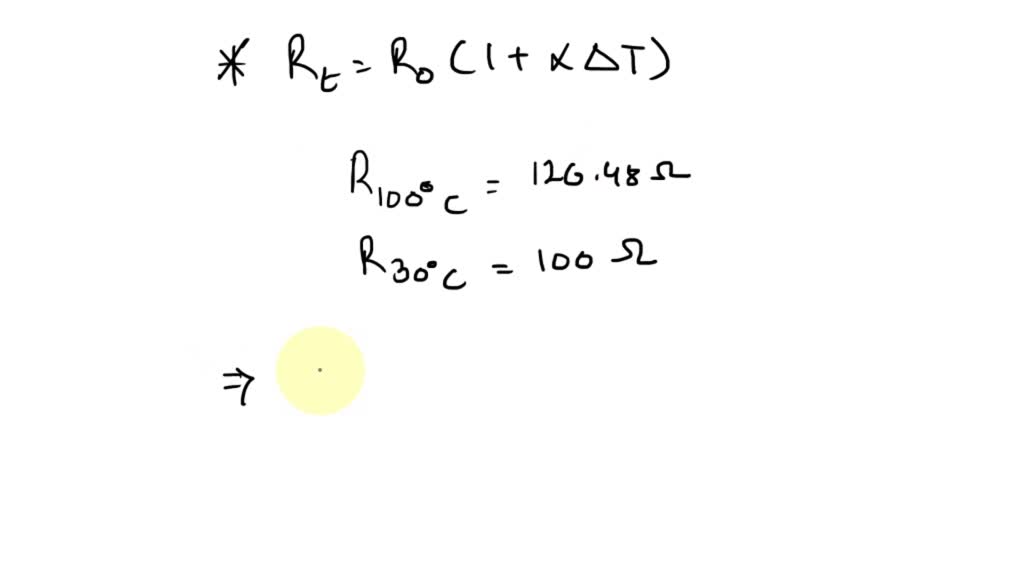 * Rₜ = R₀ (1 + α ΔT)
R₁₀₀°C = 126.48 Ω
R₃₀°C = 100 Ω
⇒